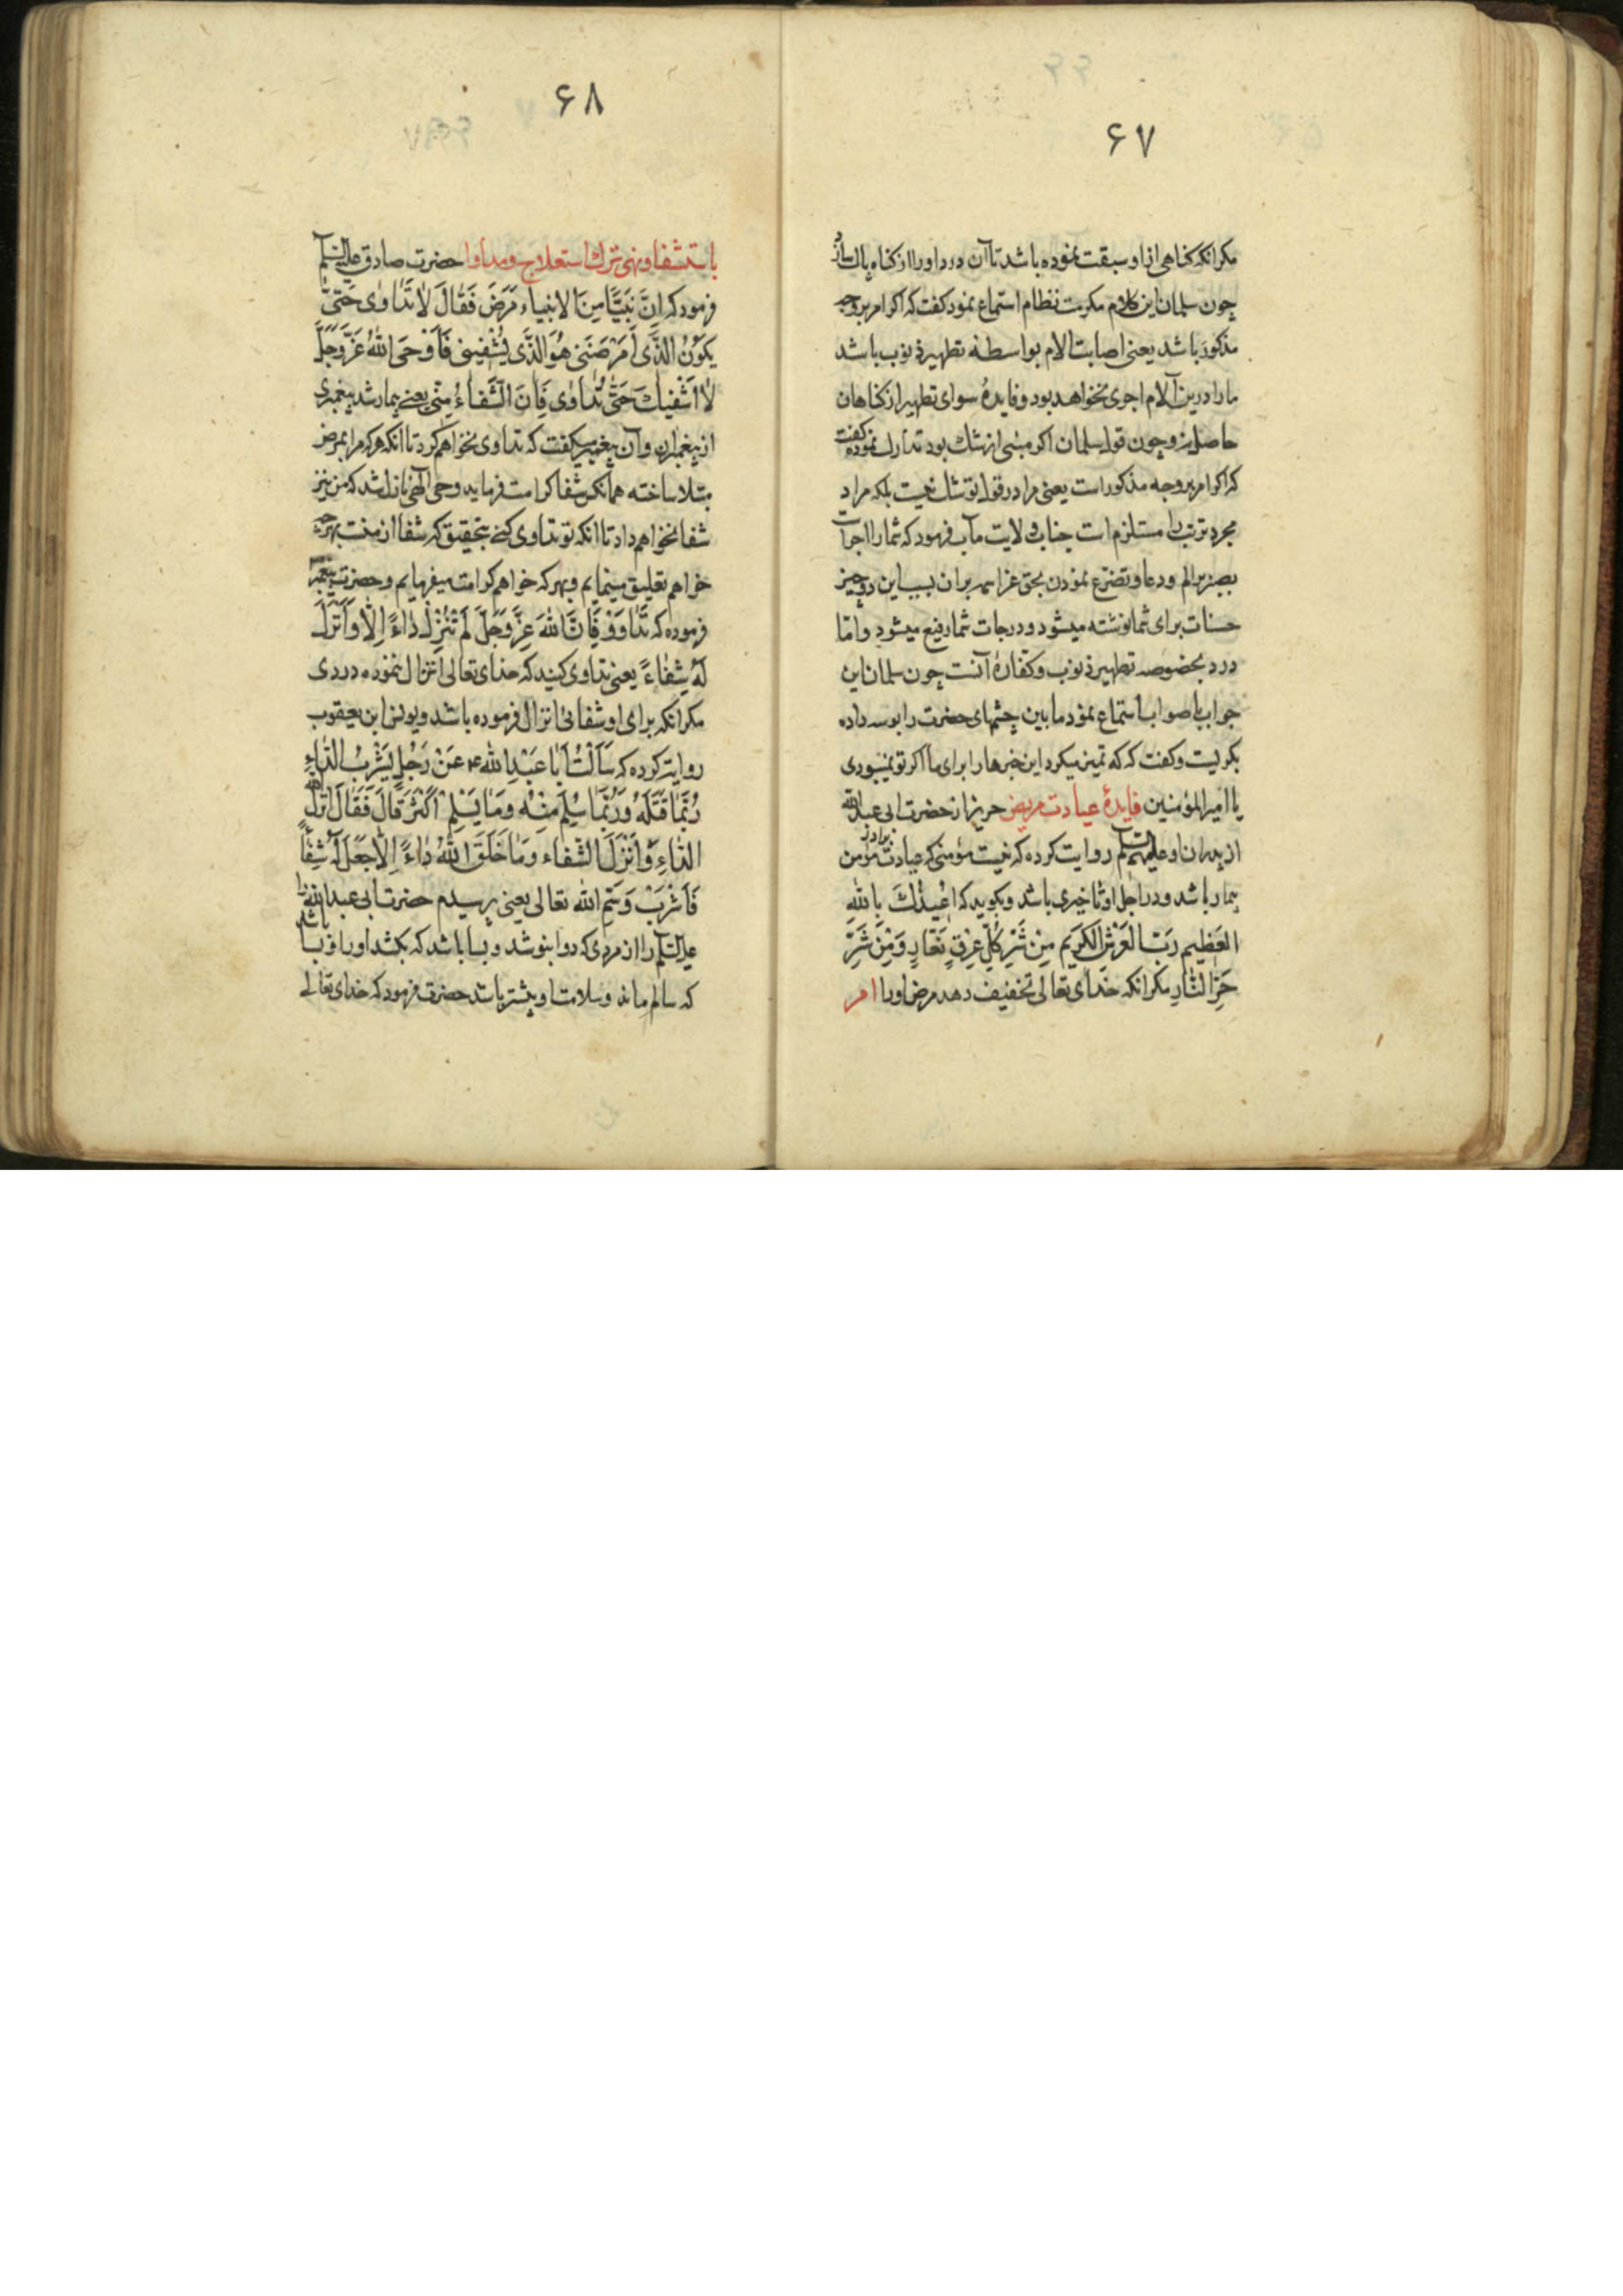 ۶۷
مکر انکه کناهی از او سبقت نموده باشد تا آن درد او را از کناه پاک سازد
چون سلمان این کلام مکرمت نظام استماع نمود کفت که اکر امر بر وجه
مذکور باشد یعنی اصابت الام بواسطه تطهیر ذنوب باشد
ما را درین آلام اجری نخواهد بود و فایدهٔ سوای تطهیر از کناهان
حاصل نه و چون قول سلمان اکر مبنی از شک بود تدارک نموده کفت
که اکر امر بر وجه مذکور است یعنی مراد در قول تو شک نیست بلکه مراد
مجرد ترتب را مستلزم است جناب ولایت مآب فرمود که شما را اجرات
بصبر بر الم و دعا و تضرع نمودن بحق عز اسمه بر ان بسبب این دو چیز
حسنات برای شما نوشته میشود و درجات شما رفیع میشود و اما
درد بخصوصه تطهیر ذنوب و کفارهٔ آنست چون سلمان این
جواب با صواب استماع نمود ما بین چشمهای حضرت را بوسه داده
بکریست و کفت که که تمیز میکرد این خبرها را برای ما اکر تو نمیبودی
یا امیر المؤمنین فایدهٔ عیادت مریض حریز از حضرت ابی عبد الله
از پدران او علیهم السلم روایت کرده که نیست مؤمنی که عیادت برادر مؤمن
بیمار باشد و در اجل او تاخیری باشد و بکوید که اُعِیذُکَ بِاللهِ
العَظِیمِ رَبِّ العَرْشِ الکَرِیمِ مِنْ شَرِّ کُلِّ عِرْقٍ نَعَّارٍ وَمِنْ شَرِّ
حَرِّ النّارِ مکر انکه خدای تعالی تخفیف دهد مرض او را امر
۶۸
باستشفا و نهی ترک استعلاج و مداوا حضرت صادق علیه السلم
فرمود که اِنَّ نَبِیًّا مِنَ الانبیاء مَرِضَ فَقالَ لا تَداوی حَتّی
یَکونُ الَّذی اَمْرَضَنی هُوَ الَّذی یُشْفِینی فَاَوْحَی اللهُ عَزَّ وَجَلَّ
لا اَشْفِیکَ حَتّی تُداوی فَاِنَّ الشَّفاءُ مِنّی یعنی بیمار شد پیغمبری
از پیغمبران و آن پیغمبر میکفت که تداوی نخواهم کرد تا انکه هرکه مرا بمرض
مبتلا ساخته همانکس شفا کرامت فرماید وحی الهی نازل شد که من نیز
شفا نخواهم داد تا انکه تو تداوی کنی بتحقیق که شفا از منست بهرچه
خواهم تعلیق مینمایم و بهرکه خواهم کرامت میفرمایم و حضرت پیغمبر
فرموده که تَداوَوْ فَاِنَّ اللهَ عَزَّ وَجَلَّ لَمْ تُنْزِلْ داءً اِلّا وَاَنْزَلَ
لَهُ شِفاءً یعنی تداوی کنید که خدای تعالی انزال ننموده دردی
مکر انکه برای او شفائی انزال فرموده باشد و یونس ابن یعقوب
روایت کرده که سَاَلْتُ اَبا عَبْدِ اللهِ ع عَنْ رَجُلٍ یَشْرَبُ الدَّاءِ
رُبَّما قَتَلَهُ وَرُبَّما سُلِمَ مِنْهُ وَما یَسْلِمُ اَکْثَرَ قالَ فَقالَ اَنْزَلَ الله
الدّاءِ وَاَنْزَلَ الشّفاء وَما خَلَقَ اللهُ داءً اِلّا جَعَلَ لَهُ شِفاءً
فَاَشْرَبْ وَسَمِّ الله تعالی یعنی پرسیدم حضرت ابی عبد الله را
علیه السلم را از مردی که دوا بنوشد و بسا باشد که بکشد او را و بسا باشد
که سالم ماند و سلامت او بیشتر باشد حضرت فرمود که خدای تعالی